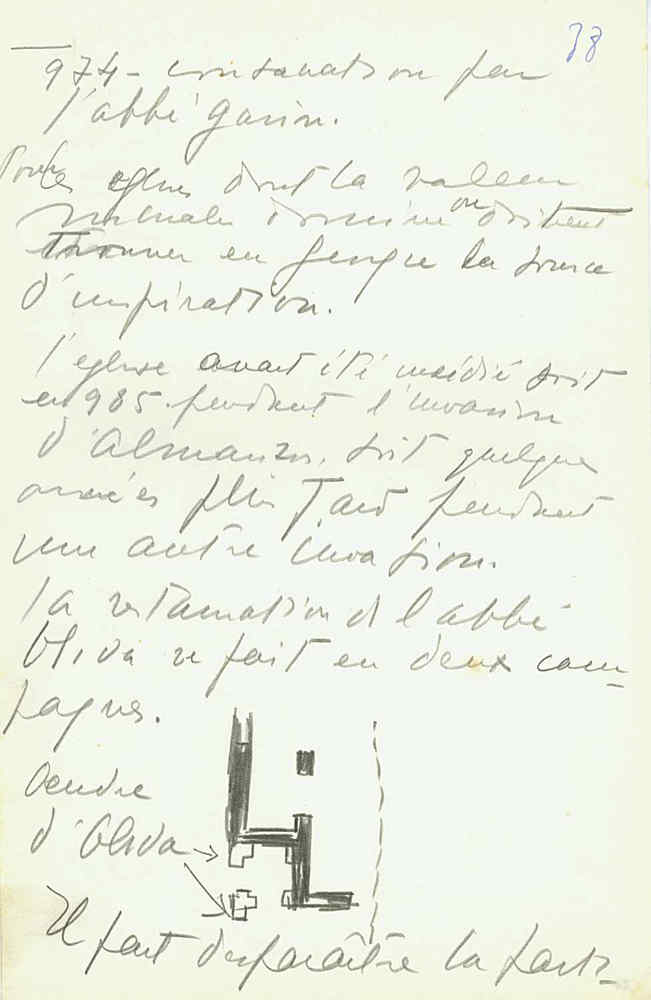 38
974 - consacration par
l'abbé Garin.
Pour les églises dont la valeur
murale domine on doit
trouver en Gengre la source
d'inspiration.
l'église avait été incédié soit
en 985 pendant l'invasion
d'Almanzor, soit quelques
années plus tard pendant
une autre invasion.
la restauration de l'abbé
Oliva se fait en deux cam-
pagnes.
Oeuvre
d'Oliva
Il fait disparaître la part-